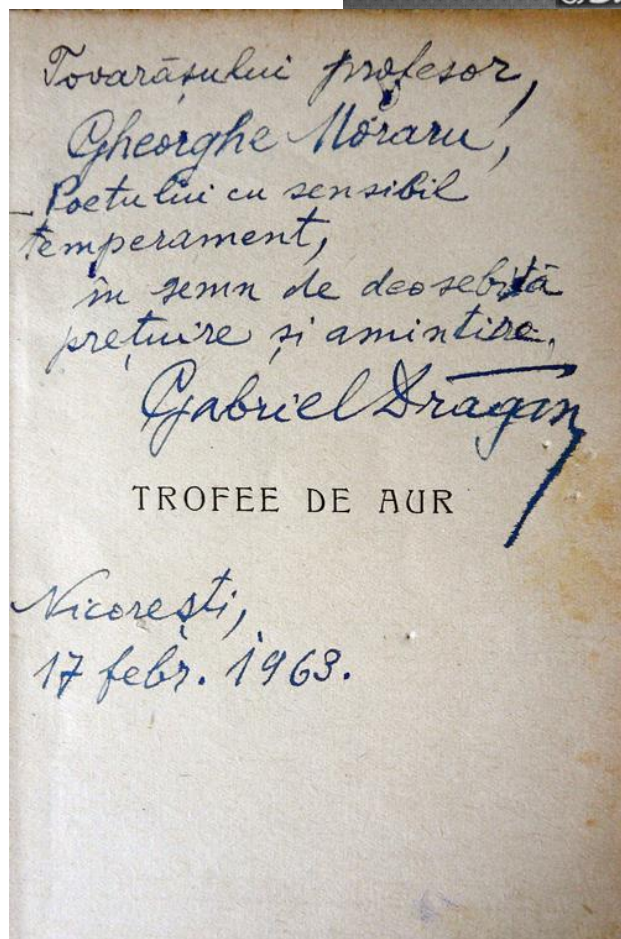 Tovarășului profesor,
Gheorghe Moraru,
- Poetului cu sensibil
temperament,
în semn de deosebită
prețuire și amintire.
Gabriel Drăgan
TROFEE DE AUR
Nicorești,
17 febr. 1963.